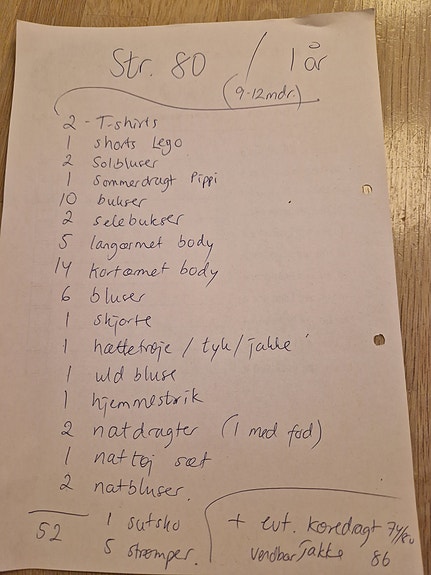 Str. 80 / 1 år
(9-12 mdr.)
2 - T-shirts
1 shorts Lego
2 Solbluser
1 Sommerdragt Pippi
10 bukser
2 selebukser
5 langærmet body
14 kortærmet body
6 bluser
1 skjorte
1 hættetrøje / tyk / jakke
1 uld bluse
1 hjemmestrik
2 natdragter (1 med fod)
1 nattøj sæt
2 natbluser.
52
1 sutsko
5 strømper.
+ evt. køredragt 74/80
vendbar jakke 86